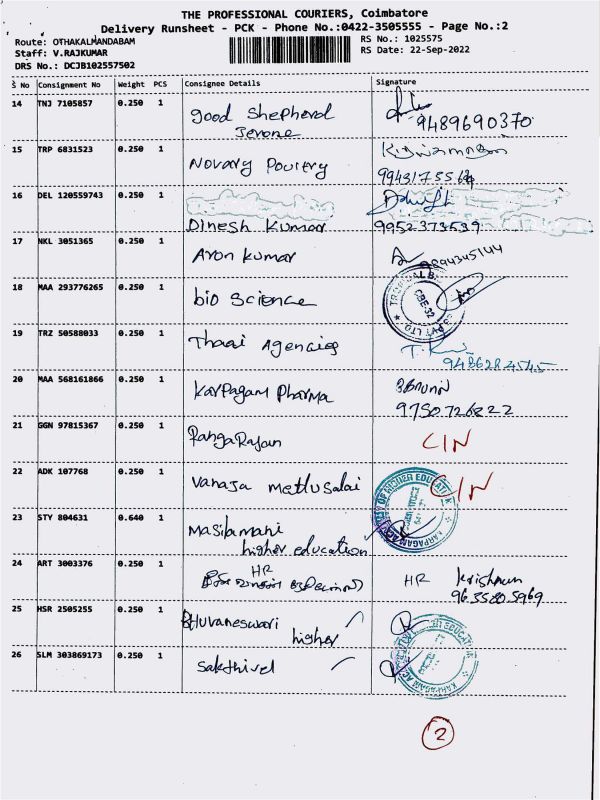 THE PROFESSIONAL COURIERS, Coimbatore
Delivery Runsheet - PCK - Phone No.:0422-3505555 - Page No.:2
Route: OTHAKALMANDABAM
RS No.: 1025575
Staff: V.RAJKUMAR
RS Date: 22-Sep-2022
DRS No.: DCJB102557502
S No Consignment No Weight PCS Consignee Details Signature
14 TNJ 7105857 0.250 1 good shepherd
Jerome
9489690370
15 TRP 6831523 0.250 1 Novary Poultry
16 DEL 120559743 0.250 1
Dinesh Kumar 9952373539
17 NKL 3051365 0.250 1 Aron Kumar 9894345144
18 MAA 293776265 0.250 1 bio Science
CBE-32
19 TRZ 50588033 0.250 1 Thaai Agencies
9486284545
20 MAA 568161866 0.250 1 Karpagam Pharma
9750726822
21 GGN 97815367 0.250 1 RangaRajan CIN
22 ADK 107768 0.250 1 Vanaja CIN
23 STY 804631 0.640 1 Masilamani
higher education
24 ART 3003376 0.250 1 HR HR Krishnan
25 HSR 2505255 0.250 1 Bhuvaneswari
higher
26 SLM 303869173 0.250 1 Sakthivel
2